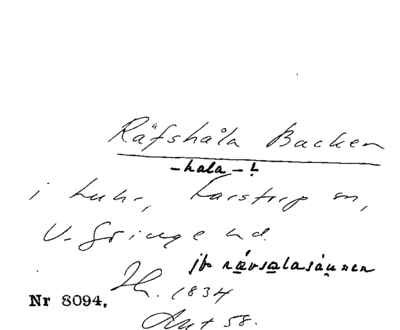 Räfshåla Backen
-hala-!
i Luhr, Farstorp sn,
V. Göinge hd.
jfr rävsalasåunen
1834
Akt 58.
Nr 8094.